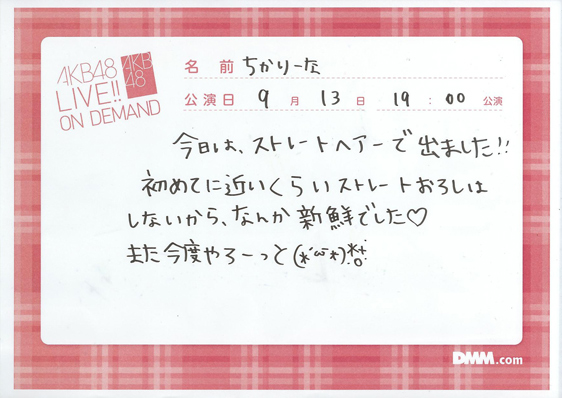 AKB48
LIVE!!
ON DEMAND
AKB
48
名 前 ちかりーな
公演日 9 月 13 日 19 : 00 公演
今日は、ストレートヘアーで出ました!!
初めてに近いくらいストレートおろしは
しないから、なんか新鮮でした♡
また今度やろーっと(*´ω`*)
DMM.com